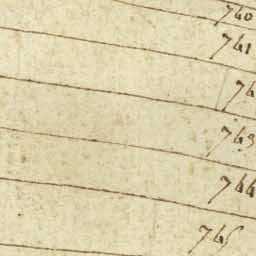 740
741
74
743
744
745